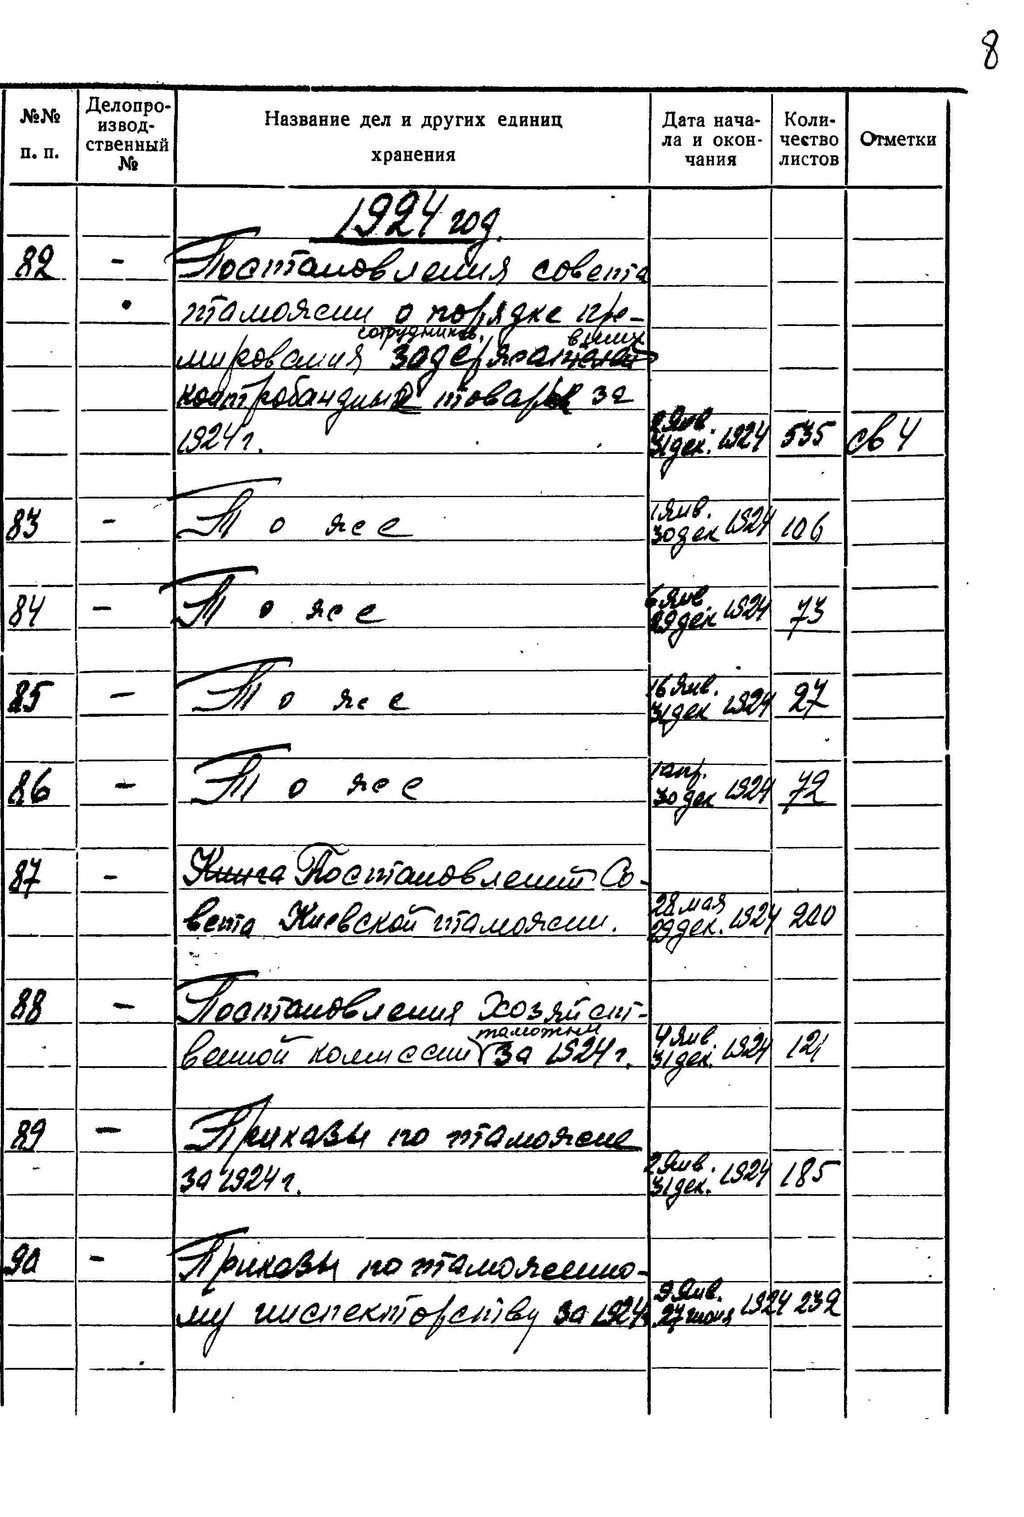 8
№№ п. п. Делопро-извод-ственный № Название дел и других единиц хранения Дата нача-ла и окон-чания Коли-чество листов Отметки
1924 год.
82 - Постановления совета
таможни о порядке пре-
сотрудников, вших
мирования задержа
контрабандные товары за
1924 г. 2 янв. 31 дек. 1924 535 св 4
83 - То же 1 янв. 30 дек 1924 106
84 - То же 6 янв. 29 дек. 1924 73
85 - То же 16 янв. 31 дек 1924 27
86 - То же 1 апр. 30 дек 1924 72
87 - Книга Постановлений Со-
вета Киевской таможни. 28 мая 29 дек. 1924 200
88 - Постановления Хозяйст-
таможни
венной комиссии за 1924 г. 4 янв. 31 дек. 1924 121
89 - Приказы по таможне
за 1924 г. 2 янв. 31 дек. 1924 185
90 - Приказы по таможенно-
му инспекторству за 1924 9 янв. 27 июня 1924 232